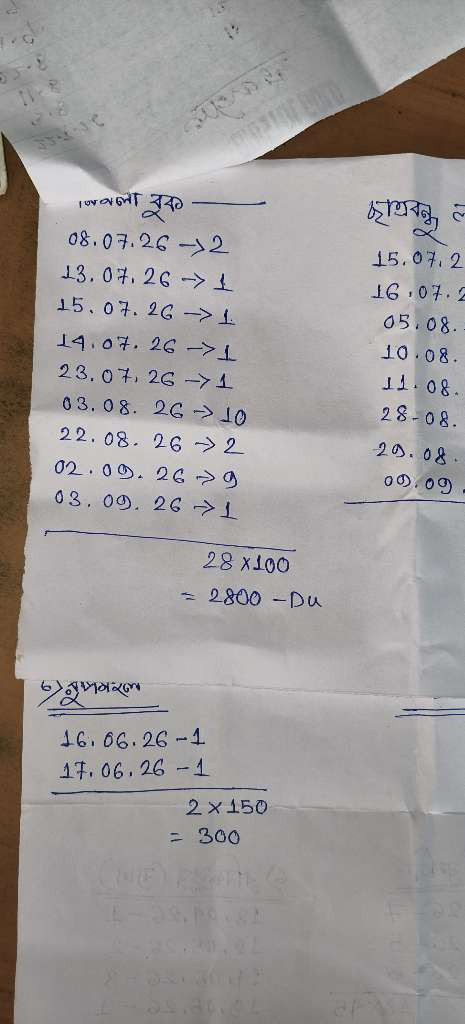 বুক
08.07.26 → 2
13.07.26 → 1
15.07.26 → 1
14.07.26 → 1
23.07.26 → 1
03.08.26 → 10
22.08.26 → 2
02.09.26 → 9
03.09.26 → 1
28 x 100
= 2800 - Du
ছাত্রবন্ধু
15.07.2
16.07.2
05.08.
10.08.
11.08.
28-08.
29.08.
09.09.
৬)
16.06.26 - 1
17.06.26 - 1
2 x 150
= 300